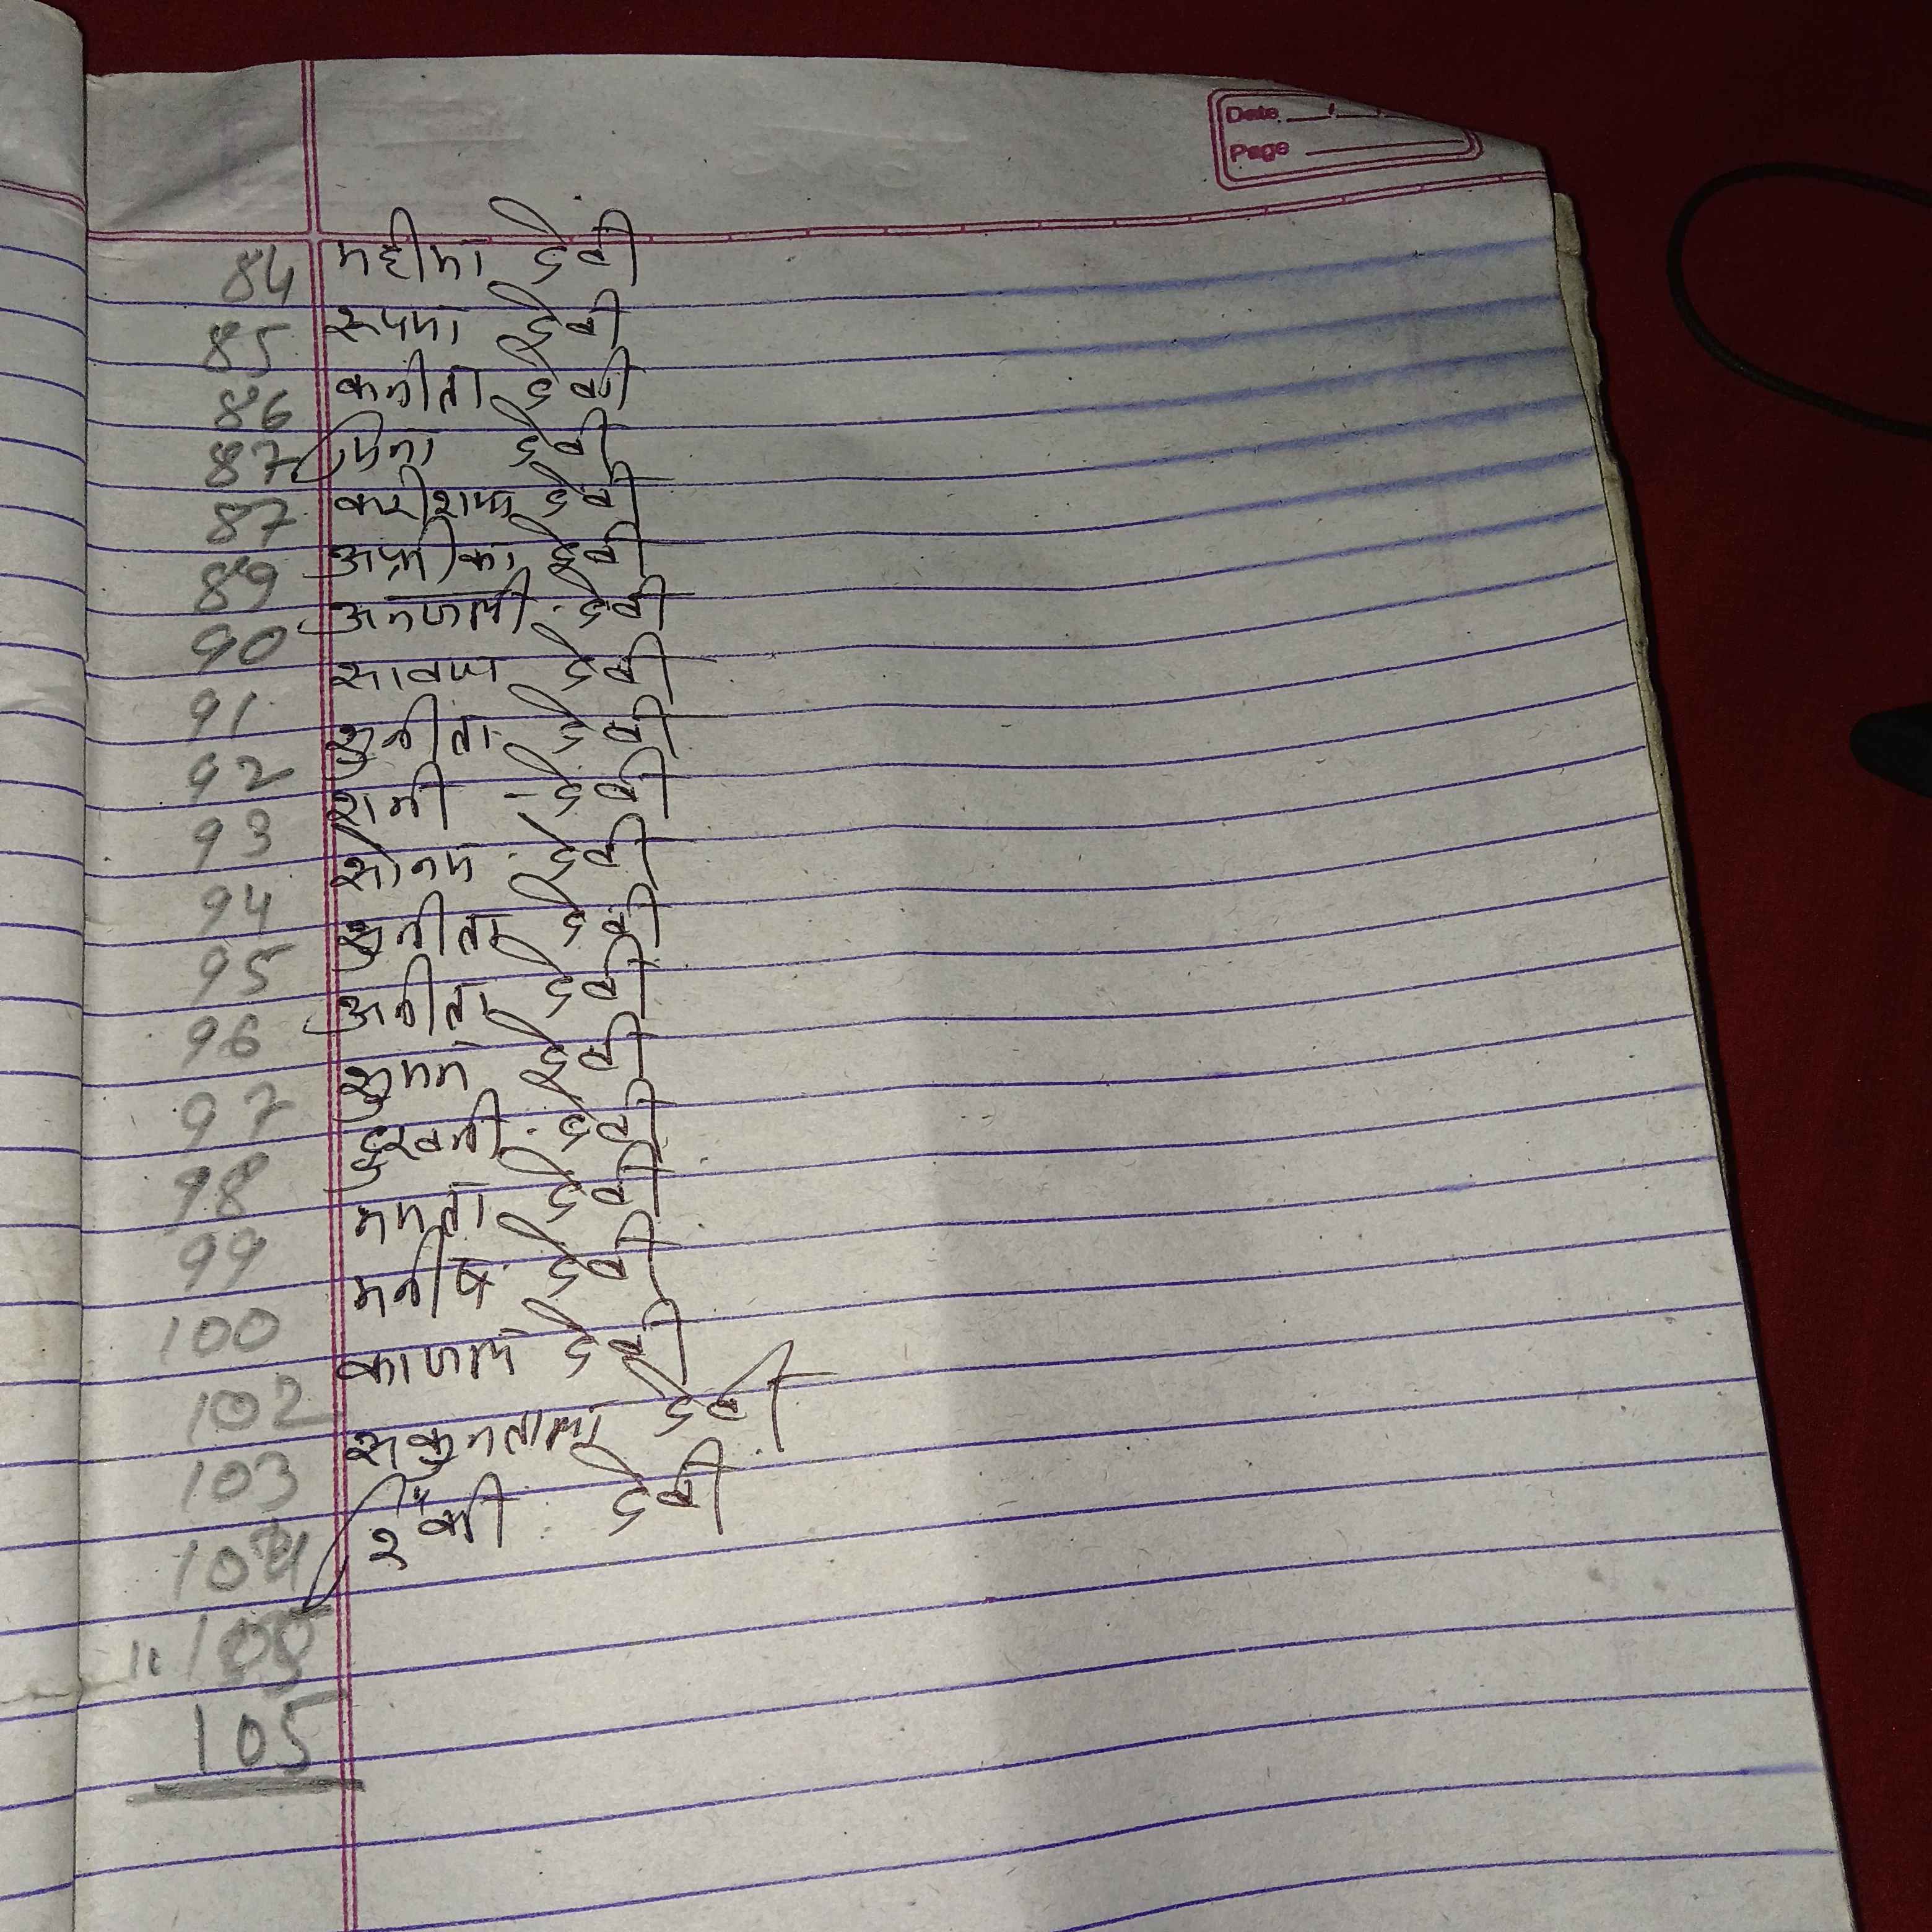 Date
Page
84 महीमा देवी
85 रूपमा देवी
86 कनीता देवी
87 मिना देवी
87 करीशमा देवी
89 देवी
90 अनजली देवी
91 देवी
92 सुनीता देवी
93 रानी देवी
94 सोनम देवी
95 सुनीता देवी
96 अनीता देवी
97 सुमन देवी
98 दुखनी देवी
99 ममता देवी
100 मनीष देवी
102 काजल देवी
103 सकुनतला देवी
104 रिँकी देवी
105